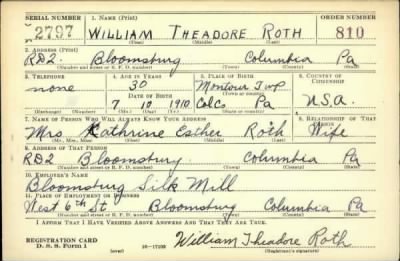 SERIAL NUMBER 1. NAME (Print) ORDER NUMBER
2797 WILLIAM THEADORE ROTH 810
(First) (Middle) (Last)
2. ADDRESS (Print)
RD2. Bloomsburg Columbia Pa
(Number and street or R. F. D. number) (Town) (County) (State)
3. TELEPHONE 4. AGE IN YEARS 5. PLACE OF BIRTH 6. COUNTRY OF CITIZENSHIP
none 30 Montour Twp
DATE OF BIRTH (Town or county)
7 10 1910 Col Co Pa U.S.A.
(Exchange) (Number) (Mo.) (Day) (Yr.) (State or country)
7. NAME OF PERSON WHO WILL ALWAYS KNOW YOUR ADDRESS 8. RELATIONSHIP OF THAT PERSON
Mrs Kathrine Esther Roth Wife
(Mr., Mrs., Miss) (First) (Middle) (Last)
9. ADDRESS OF THAT PERSON
RD2 Bloomsburg Columbia Pa
(Number and street or R. F. D. number) (Town) (County) (State)
10. EMPLOYER'S NAME
Bloomsburg Silk Mill
11. PLACE OF EMPLOYMENT OR BUSINESS
West 6th St Bloomsburg Columbia Pa
(Number and street or R. F. D. number) (Town) (County) (State)
I AFFIRM THAT I HAVE VERIFIED ABOVE ANSWERS AND THAT THEY ARE TRUE.
REGISTRATION CARD
D. S. S. Form 1 (over) 16-17105 William Theadore Roth